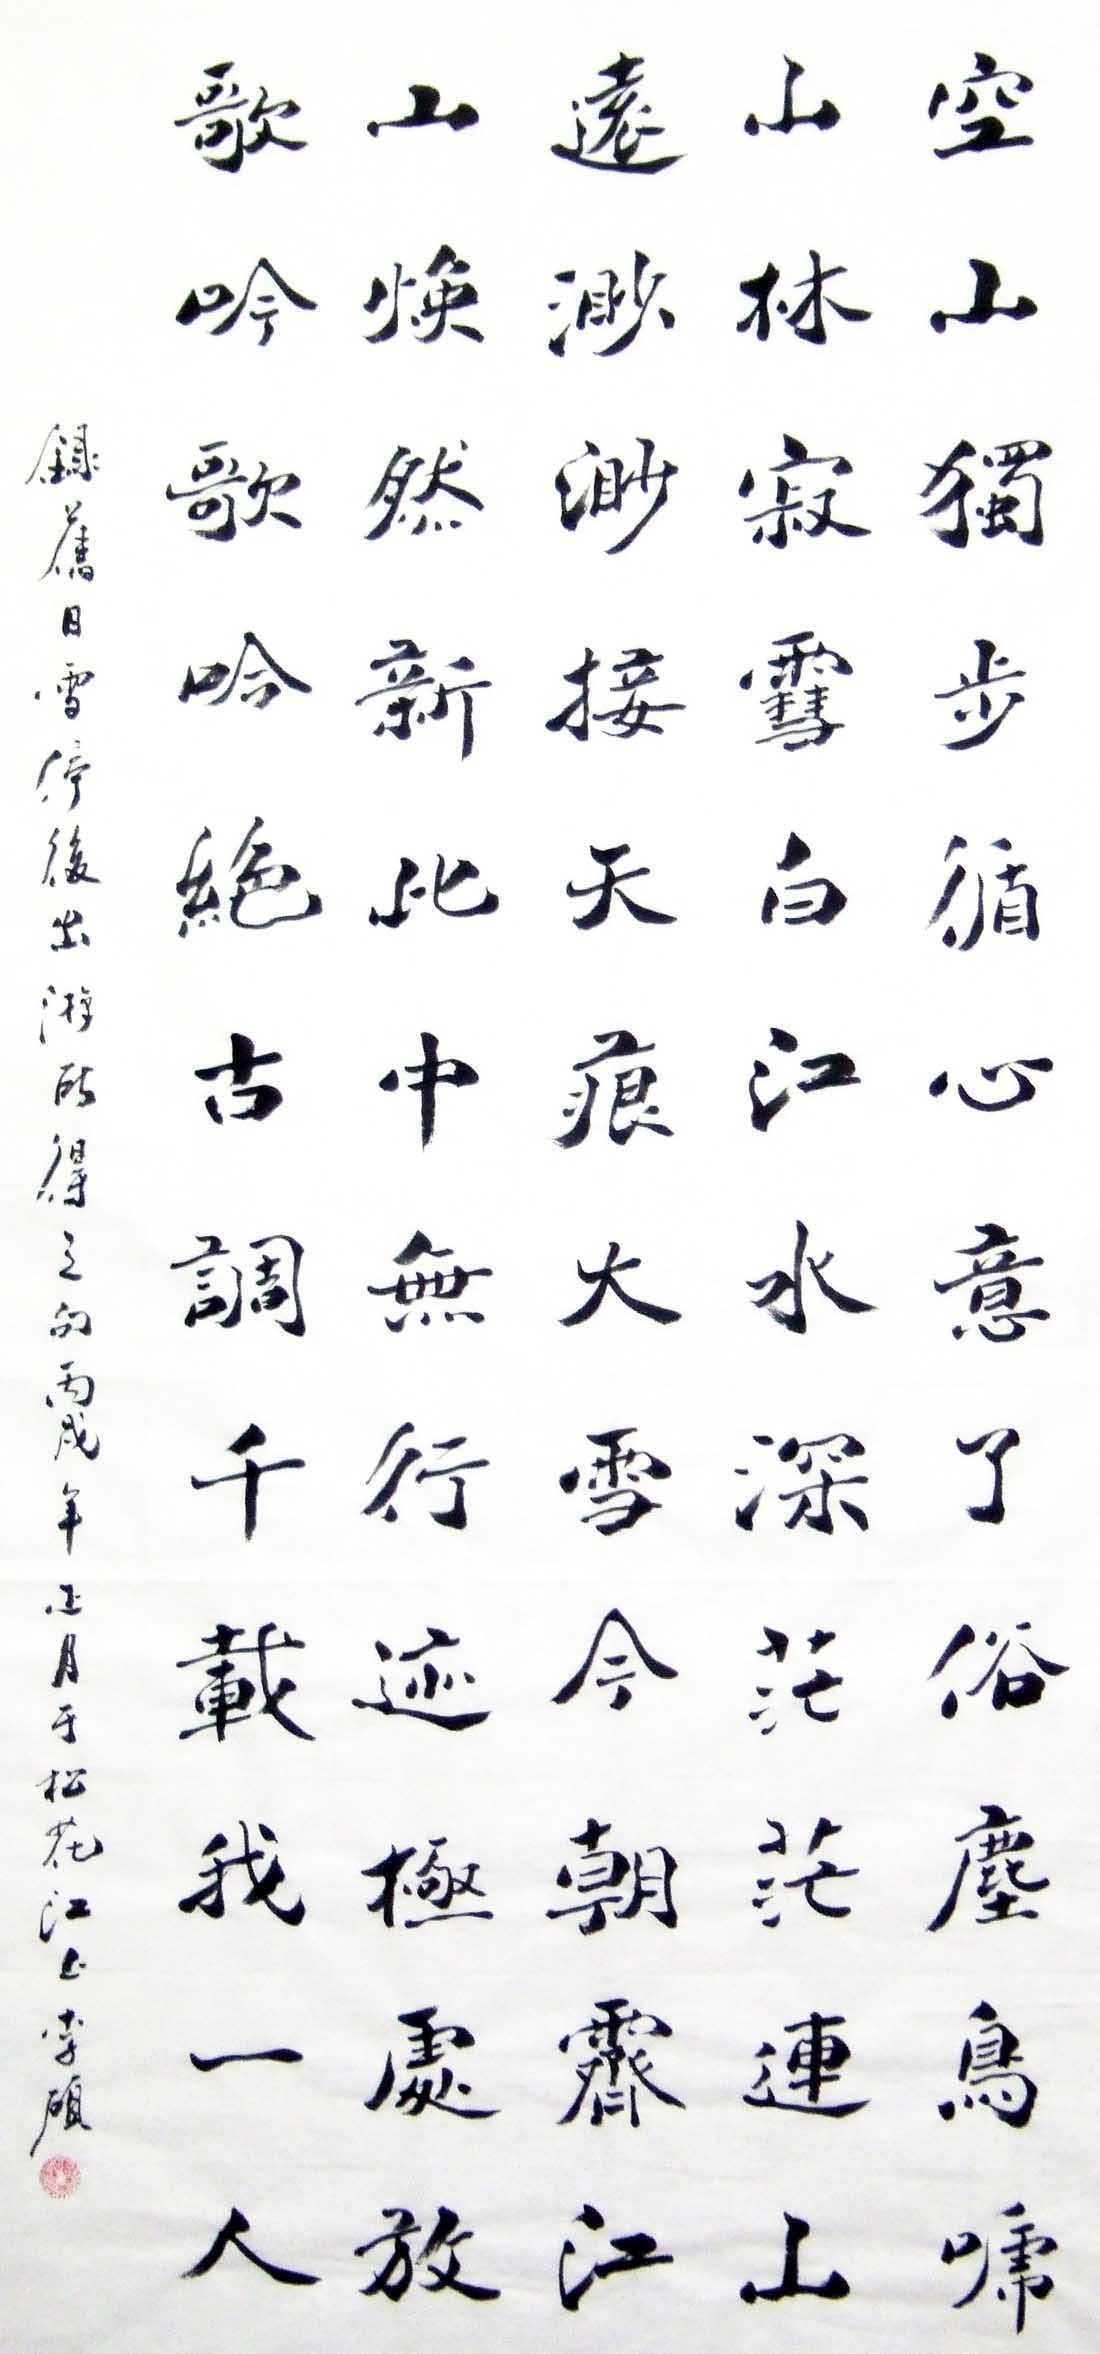 空山獨步循心意了俗塵鳥啼
山林寂雪白江水深茫茫連山
遠渺渺接天痕大雪今朝霽江
山煥然新此中無行迹極處放
歌吟歌吟絕古調千載我一人
錄舊日雪停後出游所得之句丙戌年正月于松花江上李碩